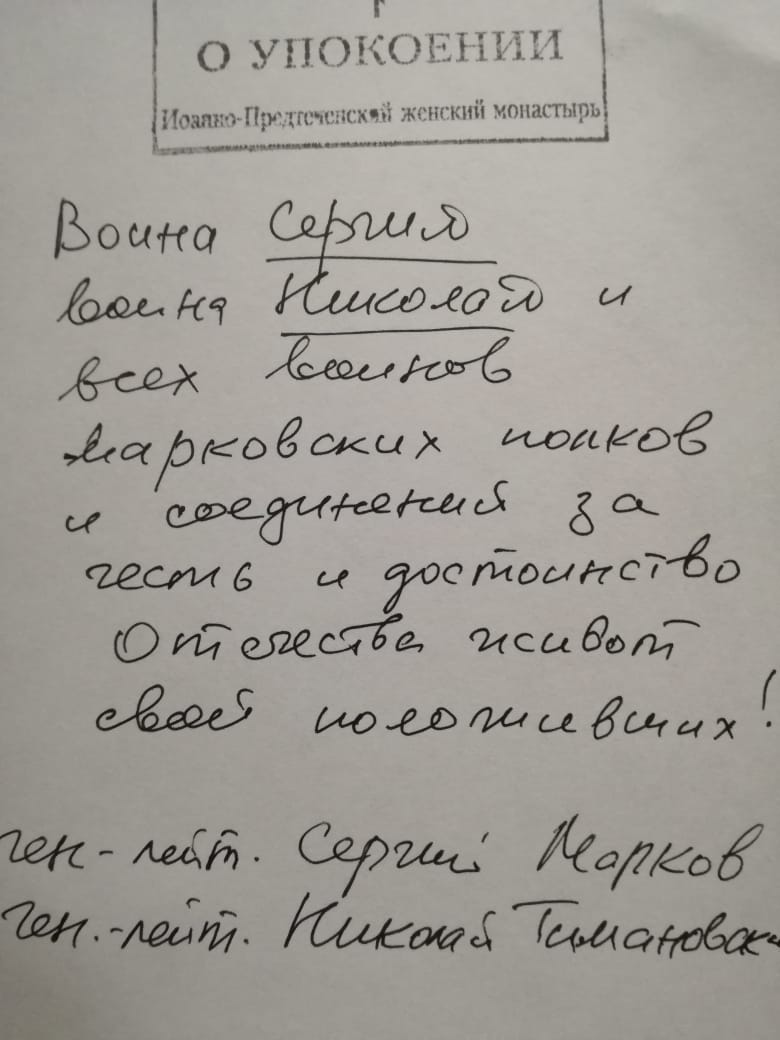 О УПОКОЕНИИ
Иоанно-Предтеченский женский монастырь
Воина Сергия
воина Николая и
всех воинов
марковских полков
и соединений за
честь и достоинство
Отечества живот
свой положивших!
ген-лейт. Сергий Марков
ген.-лейт. Николай Тимановск